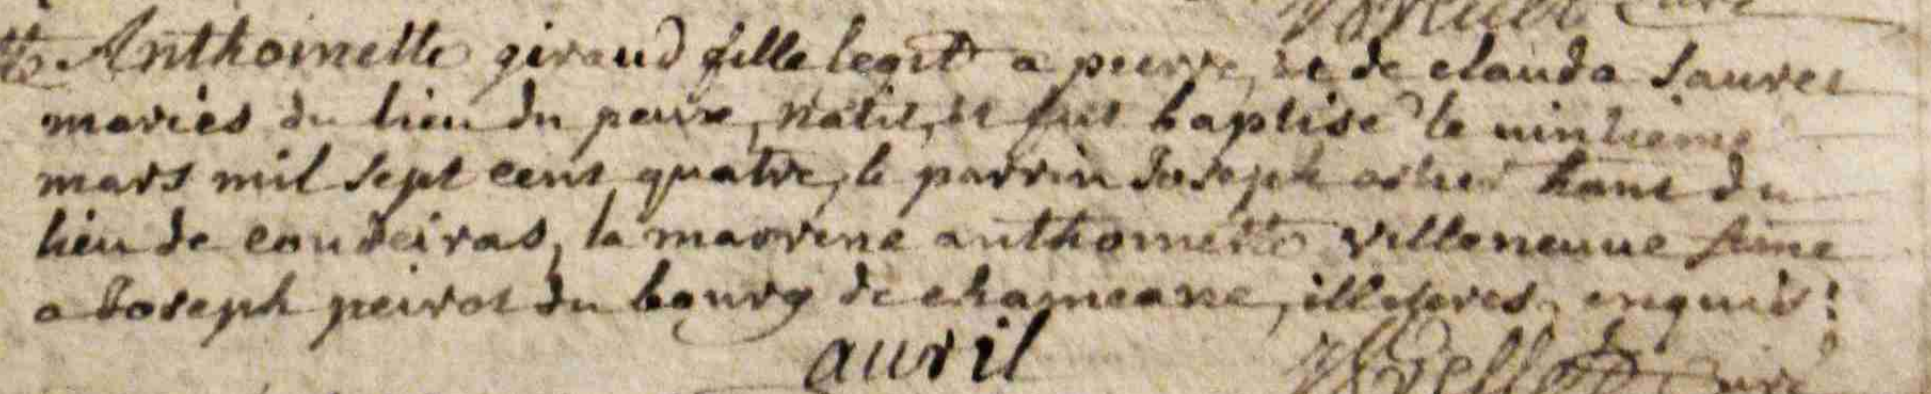 curé
Anthoinette giraud fille legit a pierre, et de clauda Sauret
mariés du lieu du peux, natit, et fut baptisé le vintieme
mars mil sept cent quatre, le parrin Joseph du
lieu de coudeiras, la marrene anthoinette villeneuue feme
a Joseph peirot du bourg de chameane, illeteres enquis:
auril
curé